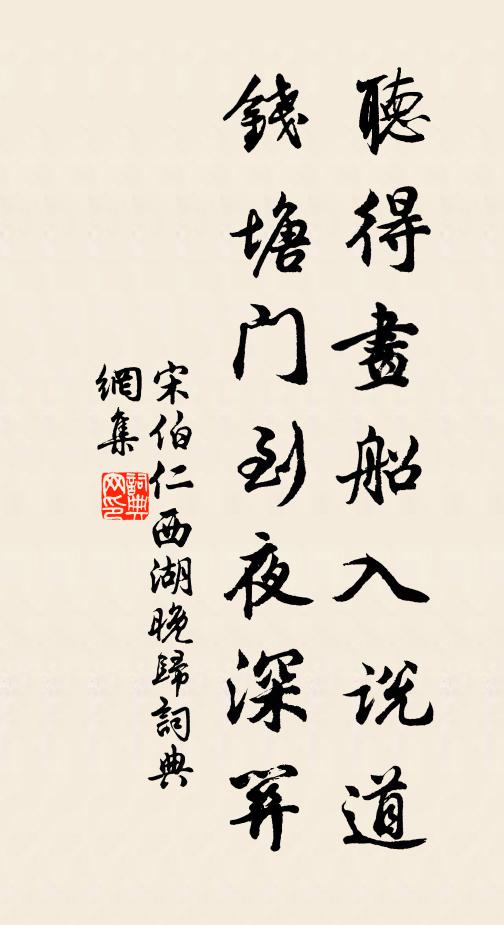 聽得畫船入説道
錢塘門到夜深開
宋伯仁西湖晚歸詞典
網集
詞典
网印